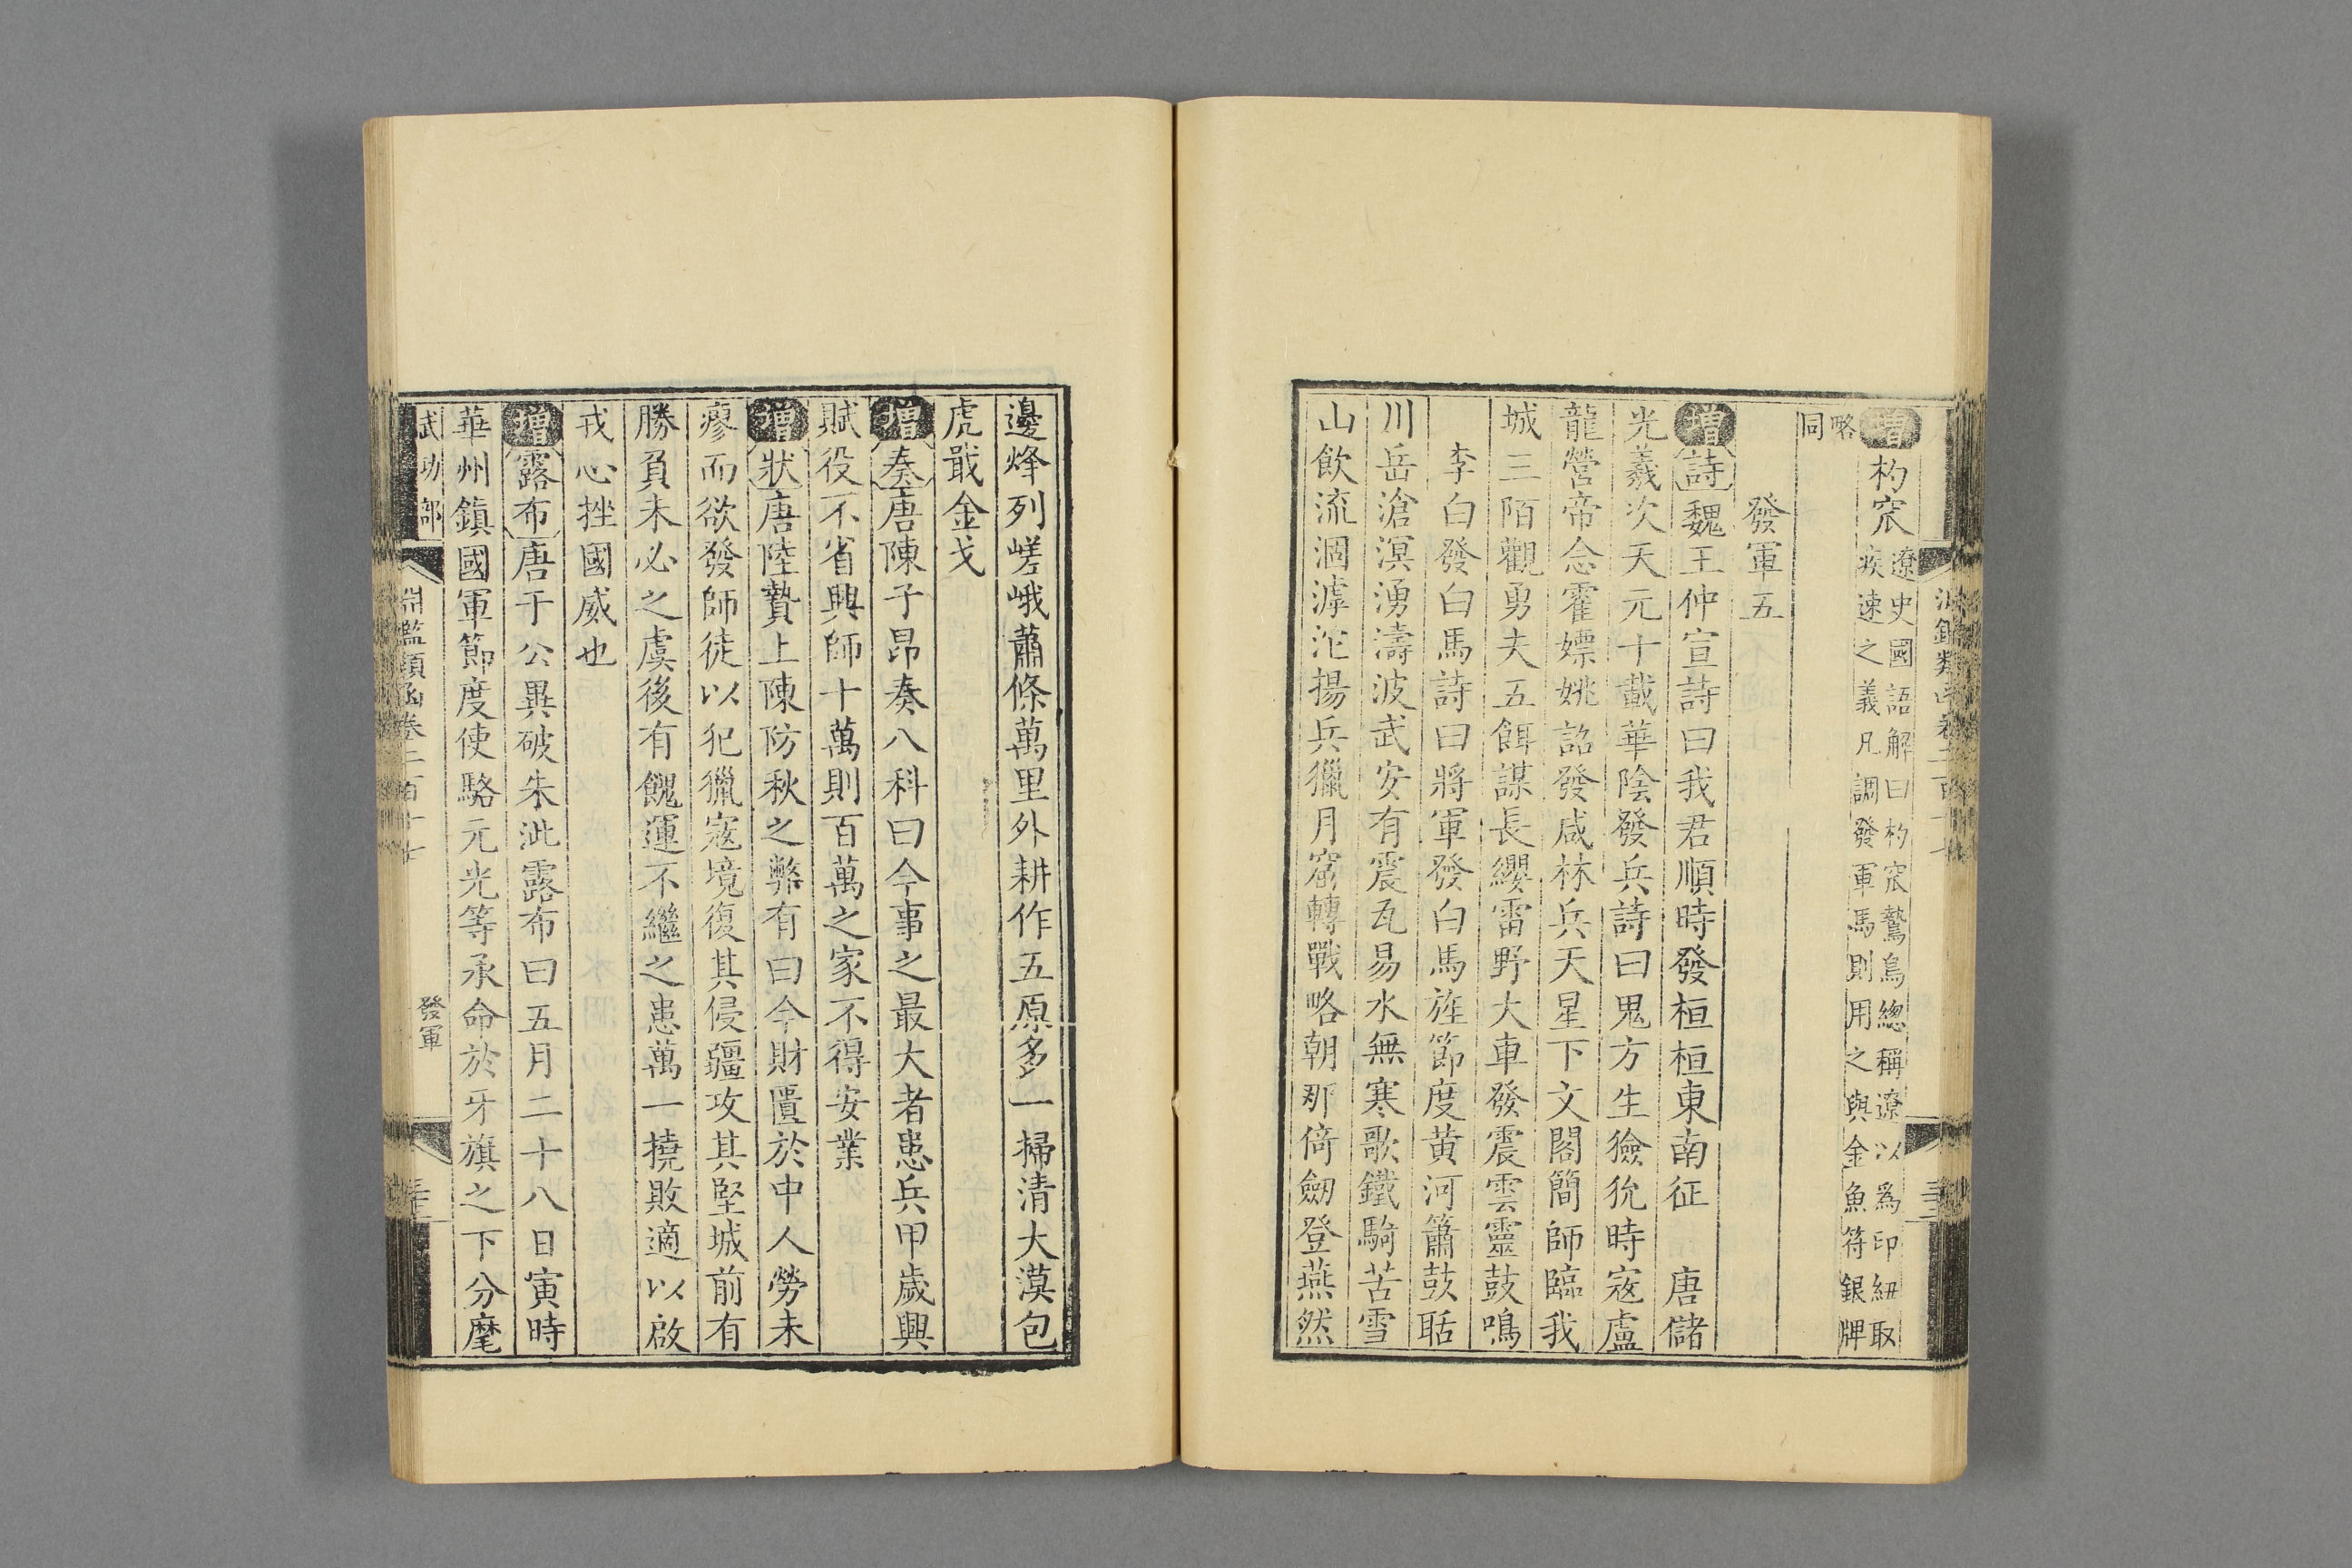 增杓窊遼史國語解曰杓窊鷙鳥總稱遼以為印紐取
疾速之義凡調發軍馬則用之與金魚符銀牌
略
同
發軍五
增詩魏王仲宣詩曰我君順時發桓桓東南征 唐儲
光羲次天元十載華陰發兵詩曰鬼方生獫狁時寇盧
龍營帝念霍嫖姚詔發咸林兵天星下文閣簡師臨我
城三陌觀勇夫五餌謀長纓雷野大車發震雲靈鼓鳴
李白發白馬詩曰將軍發白馬旌節度黃河簫鼓聒
川岳滄溟湧濤波武安有震瓦易水無寒歌鐵騎苦雪
山飲流涸滹沱揚兵獵月窟轉戰略朝那倚劒登燕然
邊烽列嵯峨蕭條萬里外耕作五原多一掃清大漠包
虎戢金戈
增奏唐陳子昂奏八科曰今事之最大者患兵甲歲興
賦役不省興師十萬則百萬之家不得安業
增狀唐陸贄上陳防秋之弊有曰今財匱於中人勞未
瘳而欲發師徒以犯獵寇境復其侵疆攻其堅城前有
勝負未必之虞後有餽運不繼之患萬一撓敗適以啟
戎心挫國威也
增露布唐于公異破朱泚露布曰五月二十八日寅時
華州鎮國軍節度使駱元光等承命於牙旗之下分麾
武功部 淵鑑類函卷二百十七 發軍